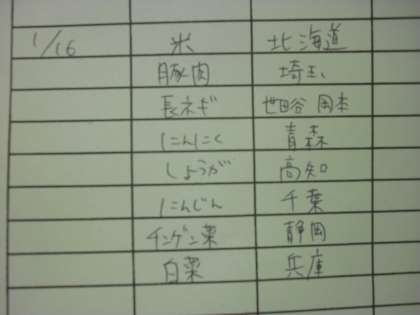 1/16 米 北海道
豚肉 埼玉
長ネギ 世田谷 岡本
にんにく 青森
しょうが 高知
にんじん 千葉
チンゲン菜 静岡
白菜 兵庫